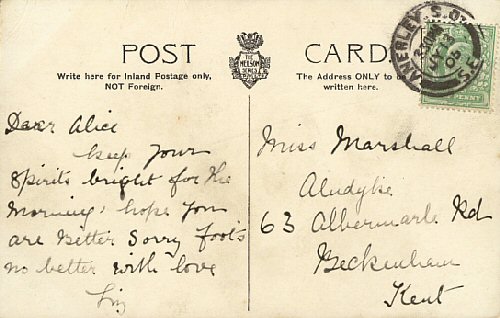 POST CARD
THE NELSON SERIES
Write here for Inland Postage only,
NOT Foreign.
The Address ONLY to be
written here.
ANERLEY. S.O.
S.E.
PENNY
Dear Alice
keep your
spirits bright for the
morning: hope you
are better sorry foot's
no better with love
Liz
Miss Marshall
63 Albermarle Rd
Beckenham
Kent